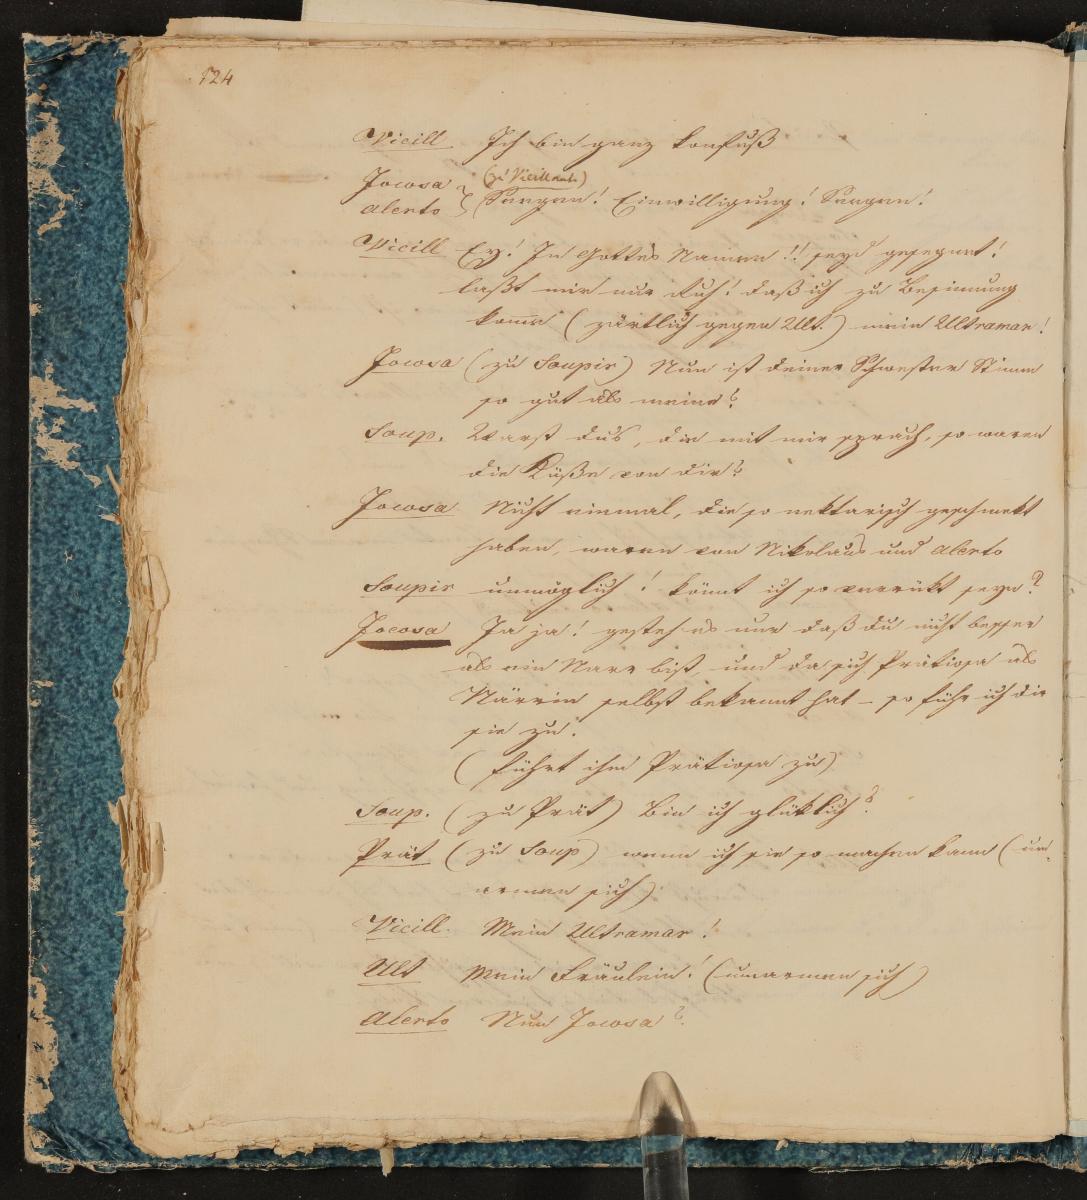 124
Vieill Ich bin ganz konfuß
Jocosa (zu Vieillarde)
Alerto } Seegen! Einwilligung! Seegen!
Vieill Ey! In Gottes Namen!! seyd gesegnet!
laßt mir nur Ruh! daß ich zu Besinnung
komme (zärtlich gegen Ult.) mein Ultramar!
Jocosa (zu Soupir) Nun ist deiner Schwester Stimm
so gut als meine?
Soup. Warst dus, die mit mir sprach, so waren
die Küße von dir?
Jocosa Nicht einmal, die so nektarisch geschmekt
haben, waren von Nikolaus und Alerto
Soupir unmöglich! könnt ich so verrükt seyn?
Jocosa Ja ja! gesteh es nur daß du nicht besser
als ein Narr bist, und da sich Prätiosa als
Närrin selbst bekannt hat – so führ ich dir
sie zu!
(führt ihm Prätiosa zu)
Soup. (zu Prät) Bin ich glüklich?
Prät (zu Soup) wenn ich sie so machen kann (um-
armen sich)
Vieill. Mein Ultramar!
Ult Mein Fräulein! (umarmen sich)
Alerto Nun Jocosa?